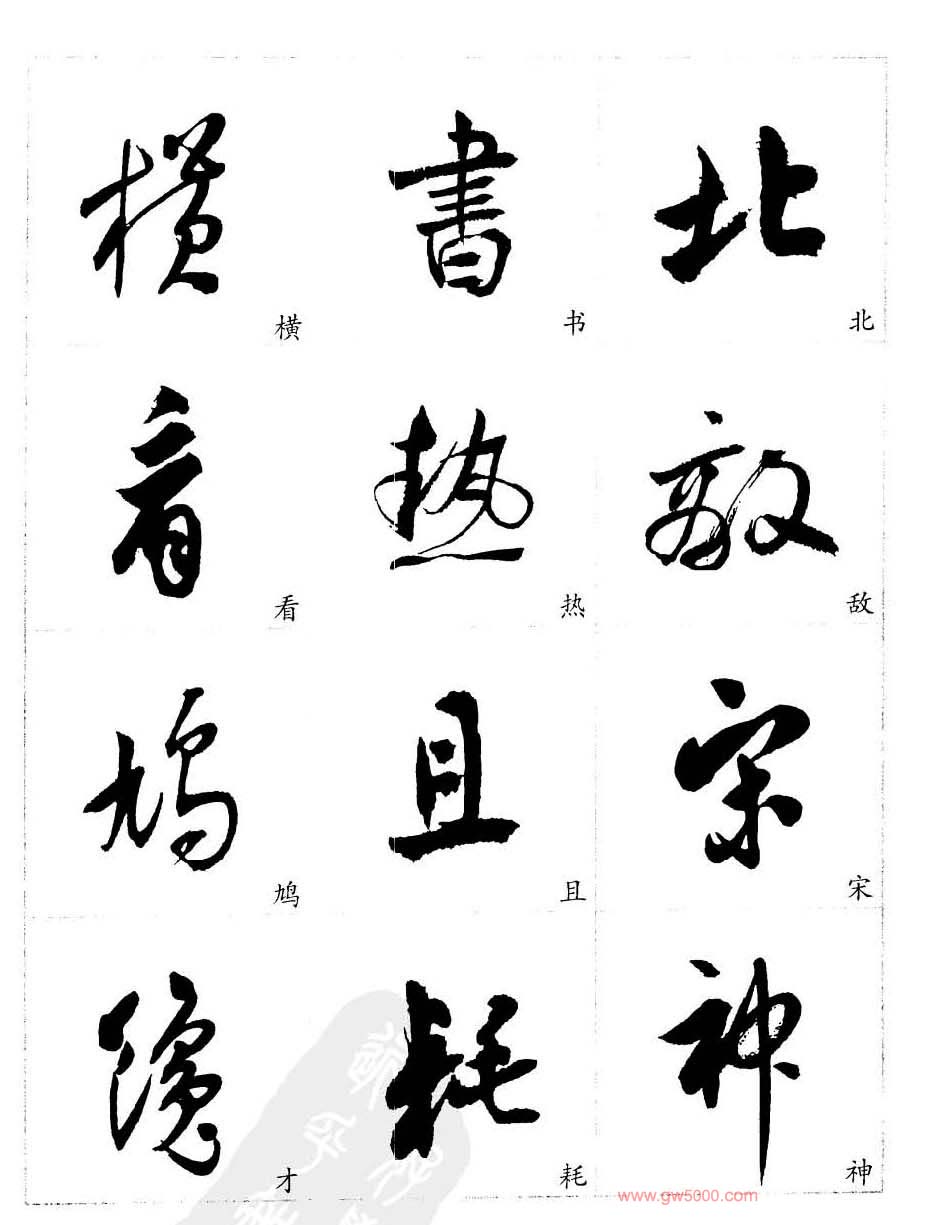 横 書 北
横 书 北
看 热 敵
看 热 敌
鳩 且 宋
鸠 且 宋
隐 耗 神
才 耗 神
www.gw5000.com